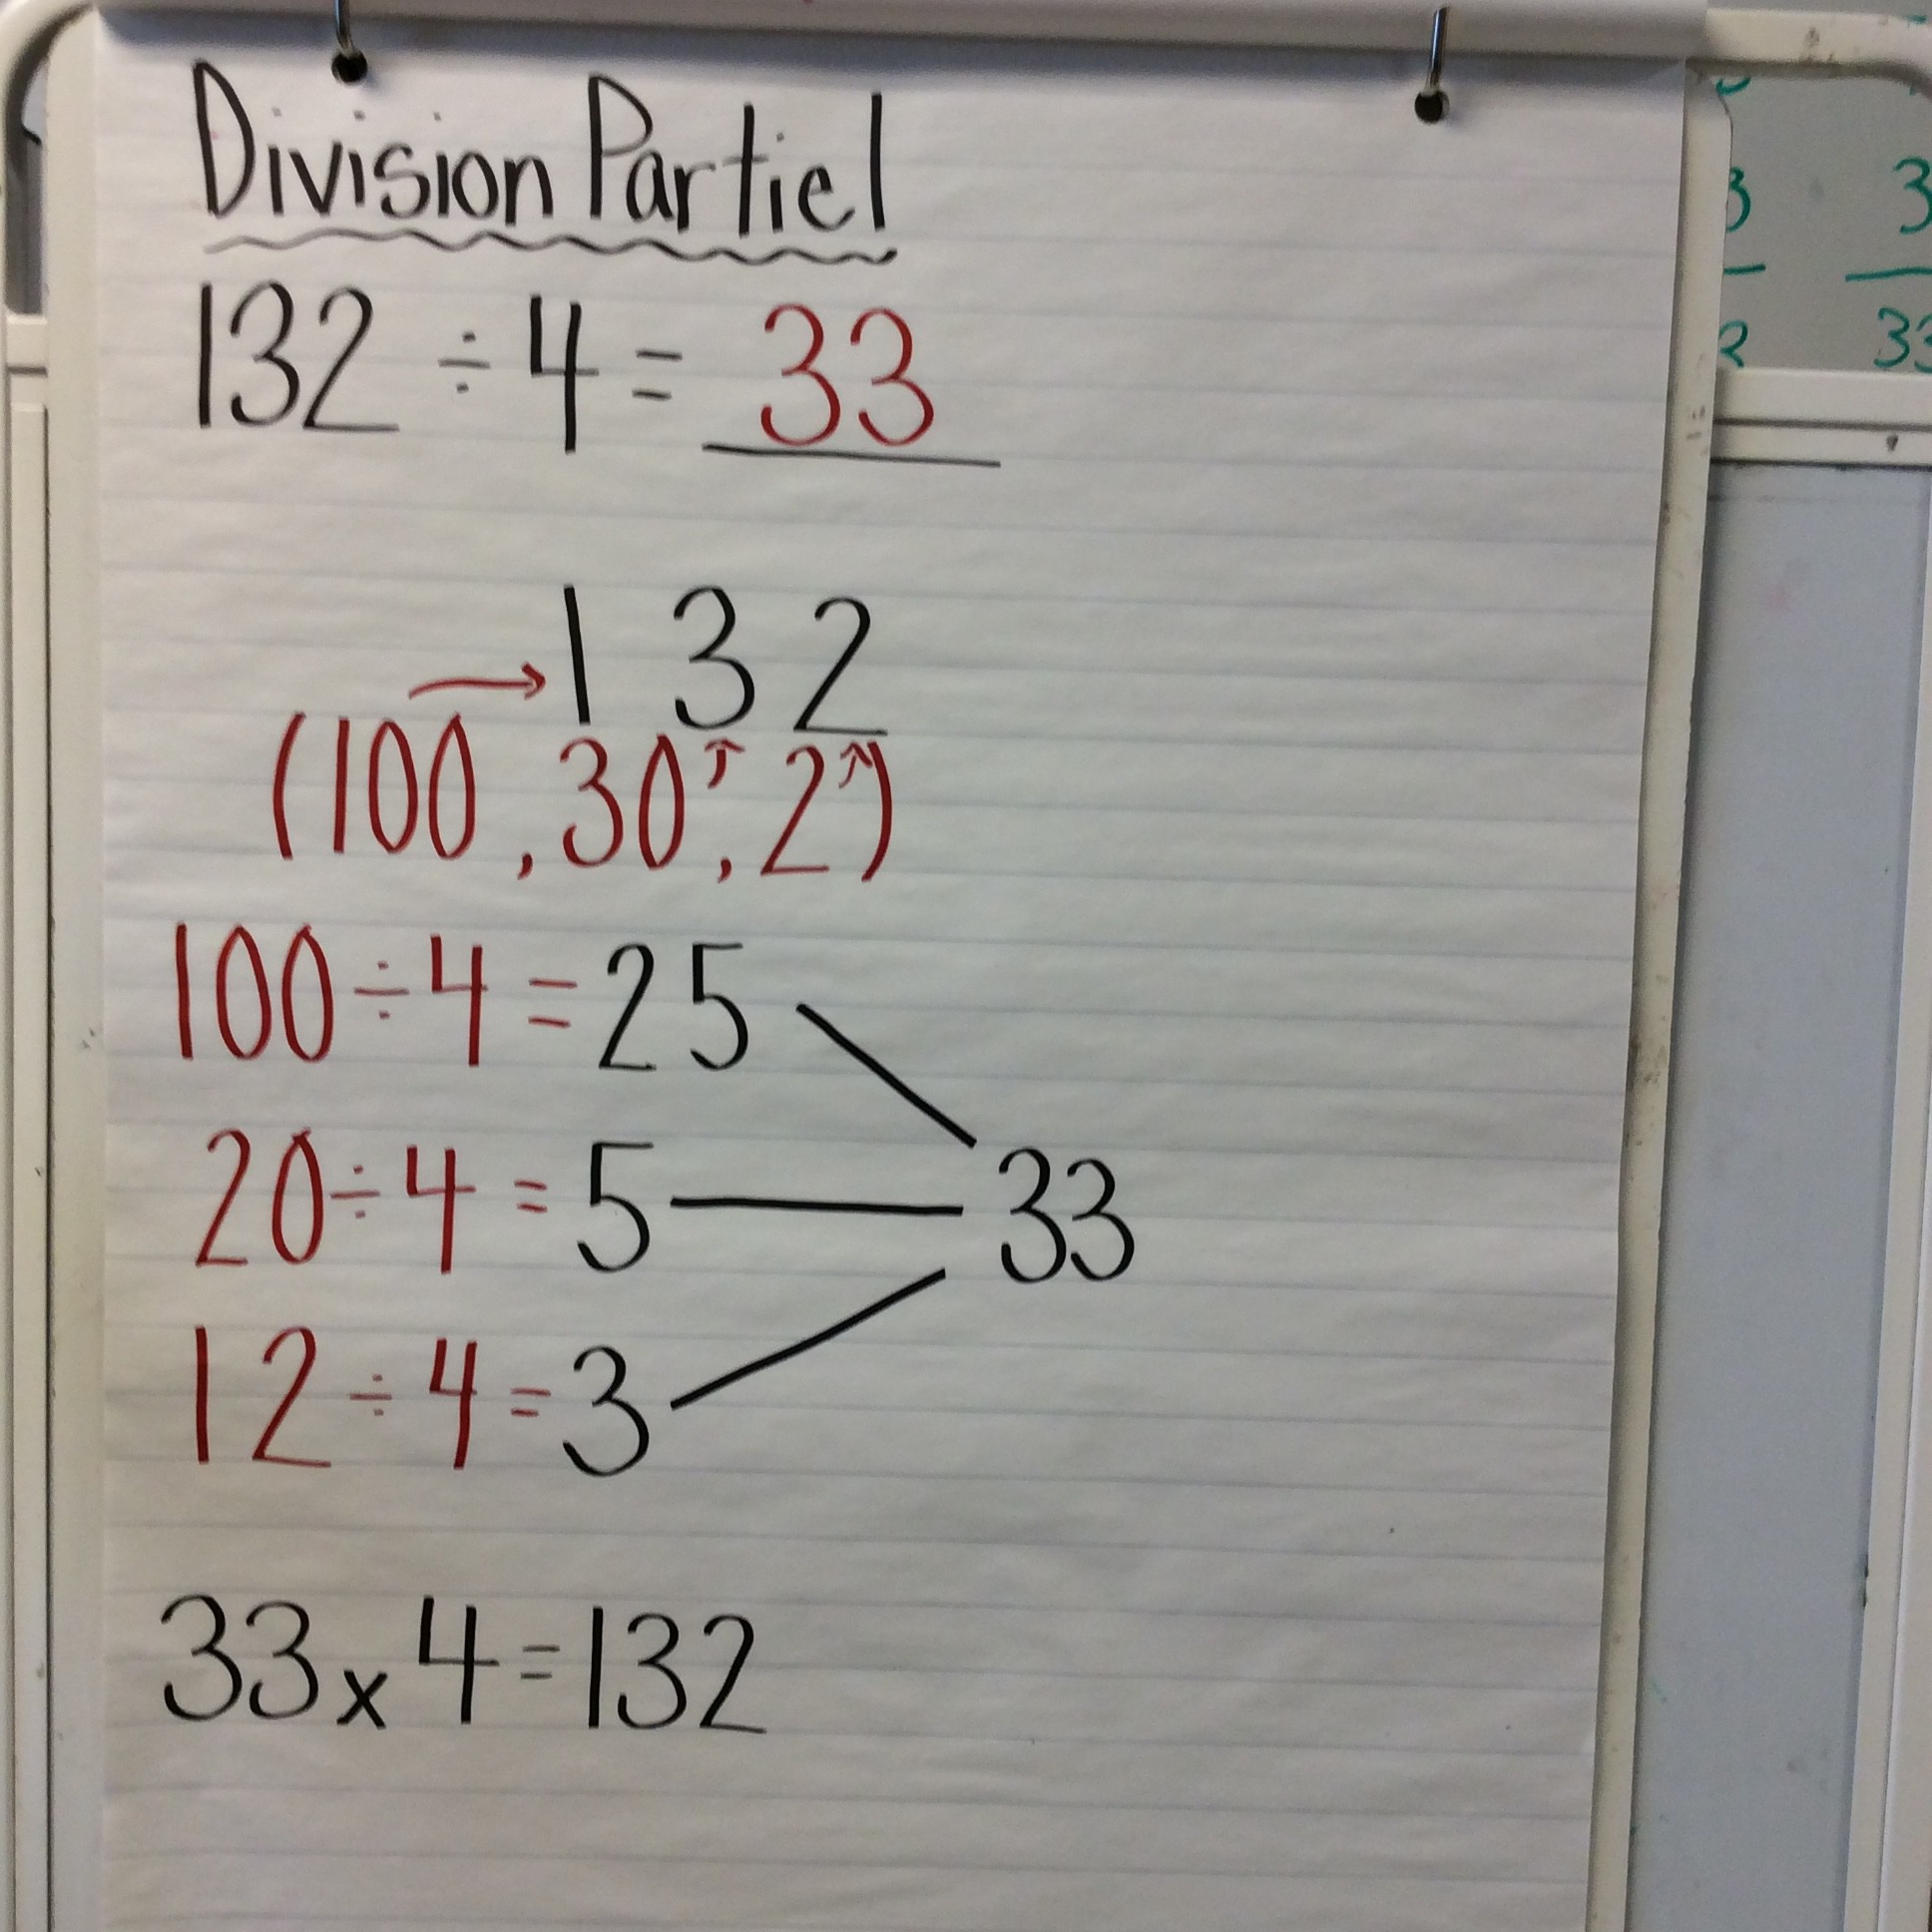 Division Partiel
132 ÷ 4 = 33
1 3 2
(100, 30, 2)
100 ÷ 4 = 25
20 ÷ 4 = 5
33
12 ÷ 4 = 3
33 x 4 = 132
3
3